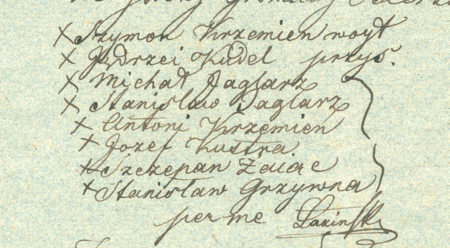 x Szymon Krzemien woyt
x Jędrzei Kudel przys.
x Michał Jaglarz
x Stanisław Jaglarz
x Antoni Krzemien
x Jozef Kustra
x Szczepan Zaiąc
x Stanisław Grzywna
per me Lasinski